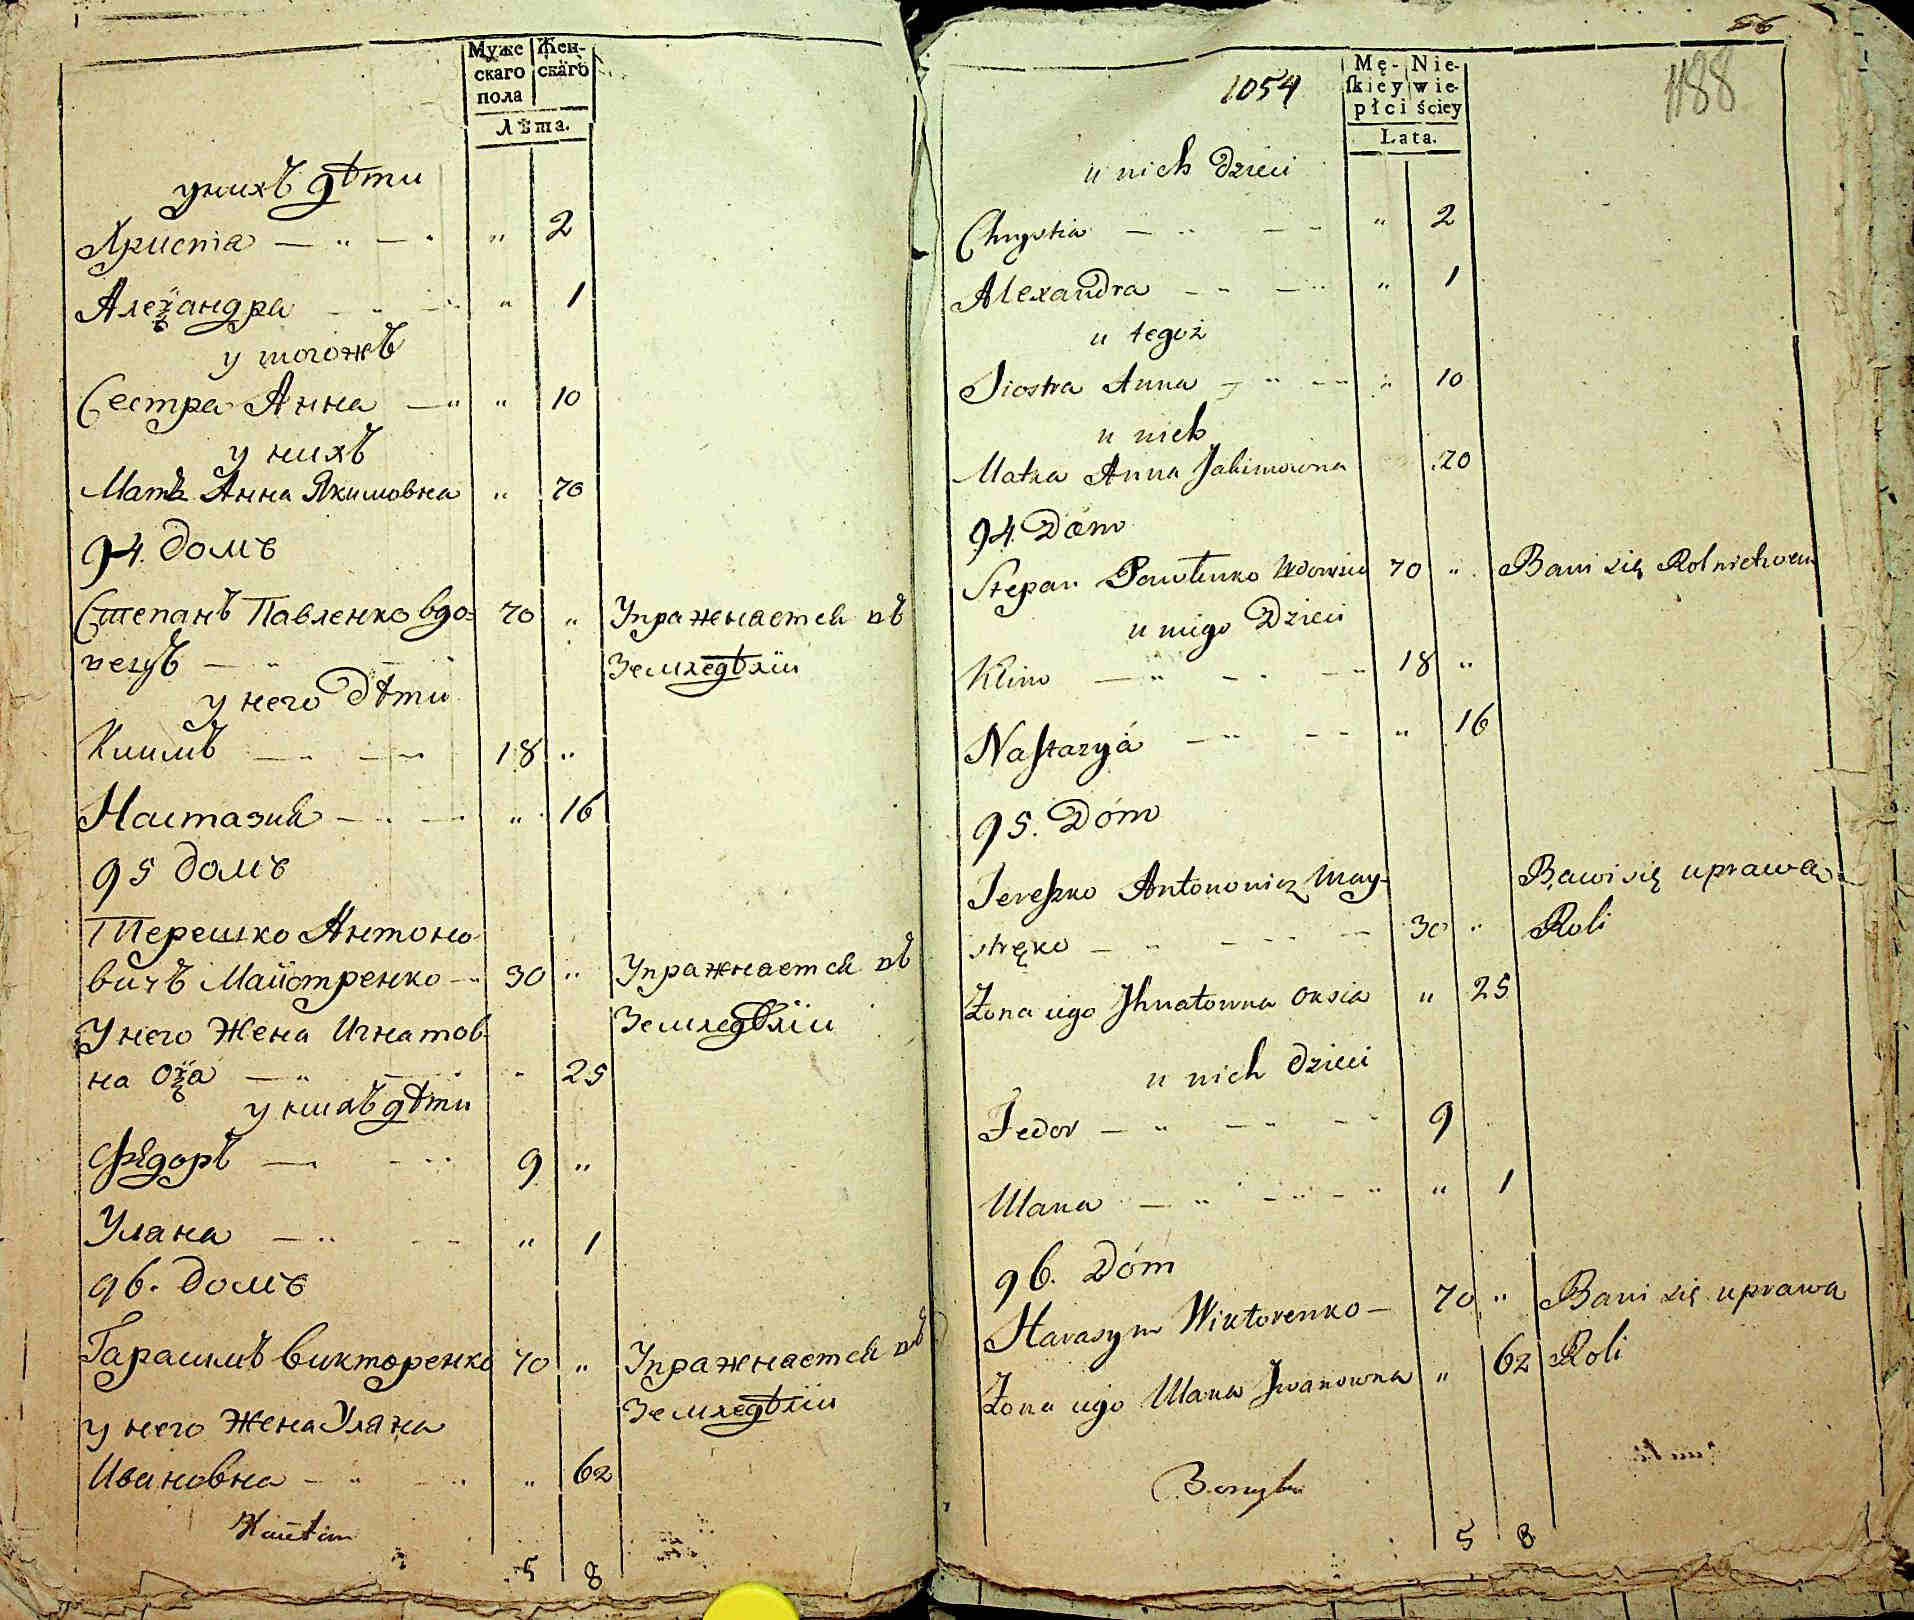 Муже
скаго
пола
Жен-
скаго
Лѣта.
у нихъ дѣти
Христя — „ — „ 2
Алеѯандра „ 1
у тогожъ
Сестра Анна — „ „ 10
у нихъ
Мать Анна Якимовна „ 70
94. домъ
Степанъ Павленко вдо= 70 „ Упражняется въ
вецъ — „ Земледѣліи
у него дѣти
Климъ 18 „
Настазия „ 16
95 домъ
Терешко Антоно
вичъ Майстренко — 30 „ Упражняется въ
У него Жена Игнатов- Земледѣліи
на Оѯа — „ 25
у нихъ дѣти
Федоръ — 9 „
Уляна — „ 1
96. домъ
Гарасимъ Викторенко 70 „ Упражняется въ
у него Жена Уляна Земледѣліи
Ивановна — „ 62
5 8
66
1054
1188
Mę-
skiey
płci
Nie-
wie-
ściey
Lata.
u nich dzieci
Chrystia — „ 2
Alexandra — „ 1
u tegoż
Siostra Anna — „ 10
u nich
Matka Anna Jakimowna 70
94. Dóm
Stepan Pawlenko Wdowiec 70 „ Bawi się Rolnictwem
u niego Dzieci
Klim — 18 „
Nastazya — „ 16
95. Dóm
Tereszko Antonowicz May- Bawi się uprawą
stręko — 30 „ Roli
Żona iego Ihnatowna Oxia „ 25
u nich dzieci
Fedor — 9
Ulana — „ 1
96. Dóm
Harasym Wiktorenko — 70 „ Bawi się uprawa
Żona iego Ulana Iwanowna „ 62 Roli
5 8